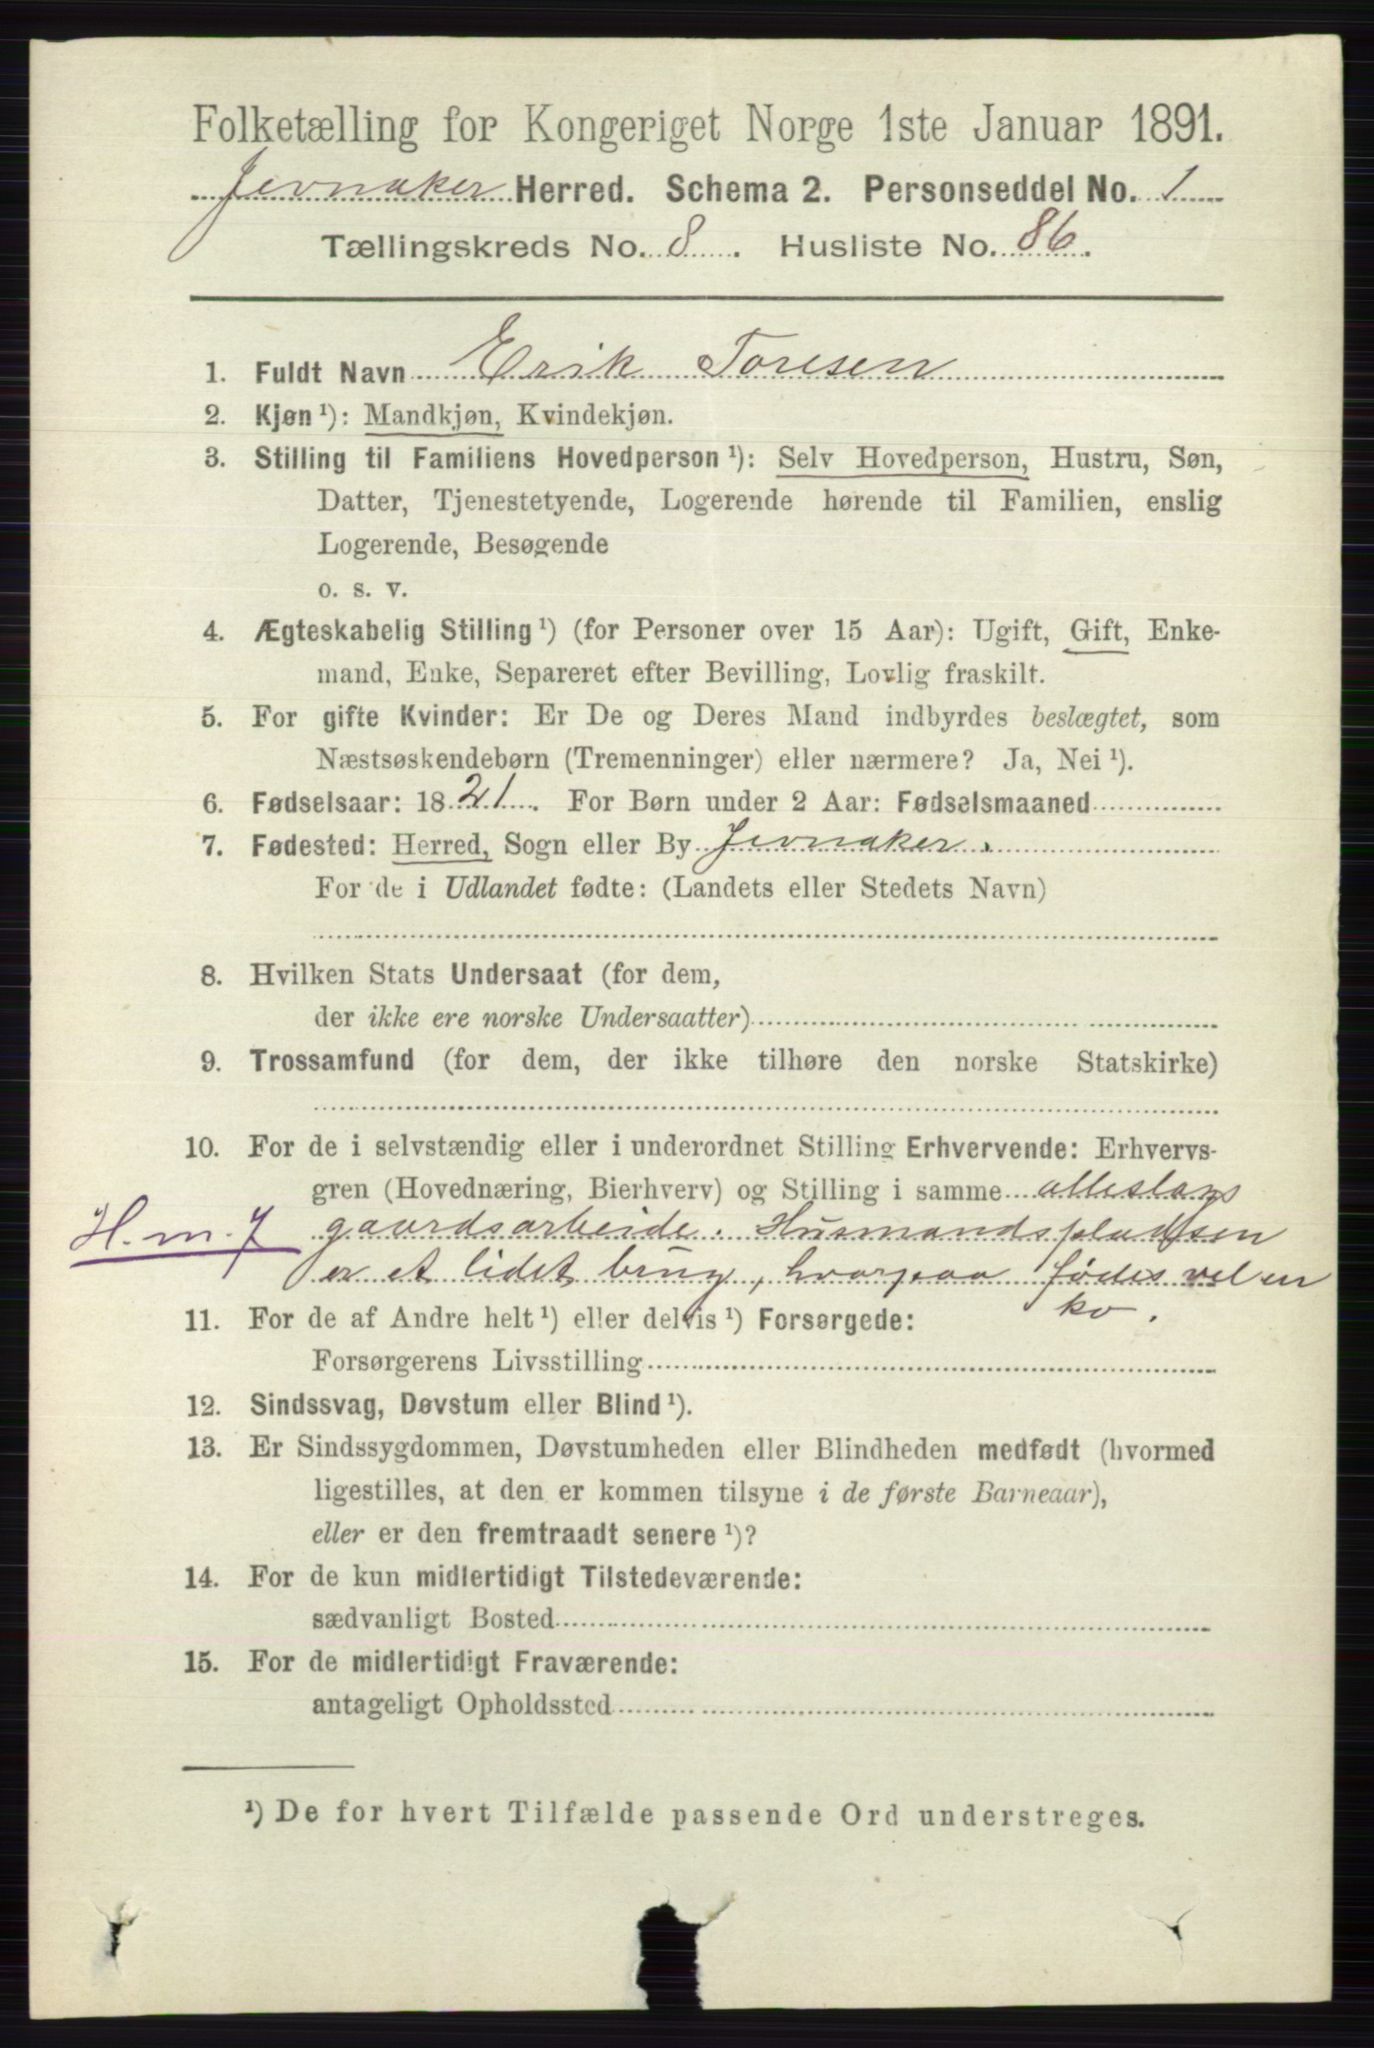 Folketælling for Kongeriget Norge 1ste Januar 1891.
Jevnaker Herred. Schema 2. Personseddel No. 1
Tællingskreds No. 8. Husliste No. 86.
1. Fuldt Navn Erik Toresen
2. Kjøn ¹): Mandkjøn, Kvindekjøn.
3. Stilling til Familiens Hovedperson ¹): Selv Hovedperson, Hustru, Søn,
Datter, Tjenestetyende, Logerende hørende til Familien, enslig
Logerende, Besøgende
o. s. v.
4. Ægteskabelig Stilling ¹) (for Personer over 15 Aar): Ugift, Gift, Enke-
mand, Enke, Separeret efter Bevilling, Lovlig fraskilt.
5. For gifte Kvinder: Er De og Deres Mand indbyrdes beslægtet, som
Næstsøskendebørn (Tremenninger) eller nærmere? Ja, Nei ¹).
6. Fødselsaar: 1821. For Børn under 2 Aar: Fødselsmaaned
7. Fødested: Herred, Sogn eller By Jevnaker.
For de i Udlandet fødte: (Landets eller Stedets Navn)
8. Hvilken Stats Undersaat (for dem,
der ikke ere norske Undersaatter)
9. Trossamfund (for dem, der ikke tilhøre den norske Statskirke)
10. For de i selvstændig eller i underordnet Stilling Erhvervende: Erhvervs-
gren (Hovednæring, Bierhverv) og Stilling i samme alleslags
H. m. J gaardsarbeide. Husmandspladsen
er et lidet brug, hvorpaa fødes vel en
ko.
11. For de af Andre helt ¹) eller delvis ¹) Forsørgede:
Forsørgerens Livsstilling
12. Sindssvag, Døvstum eller Blind ¹).
13. Er Sindssygdommen, Døvstumheden eller Blindheden medfødt (hvormed
ligestilles, at den er kommen tilsyne i de første Barneaar),
eller er den fremtraadt senere ¹)?
14. For de kun midlertidigt Tilstedeværende:
sædvanligt Bosted
15. For de midlertidigt Fraværende:
antageligt Opholdssted
¹) De for hvert Tilfælde passende Ord understreges.